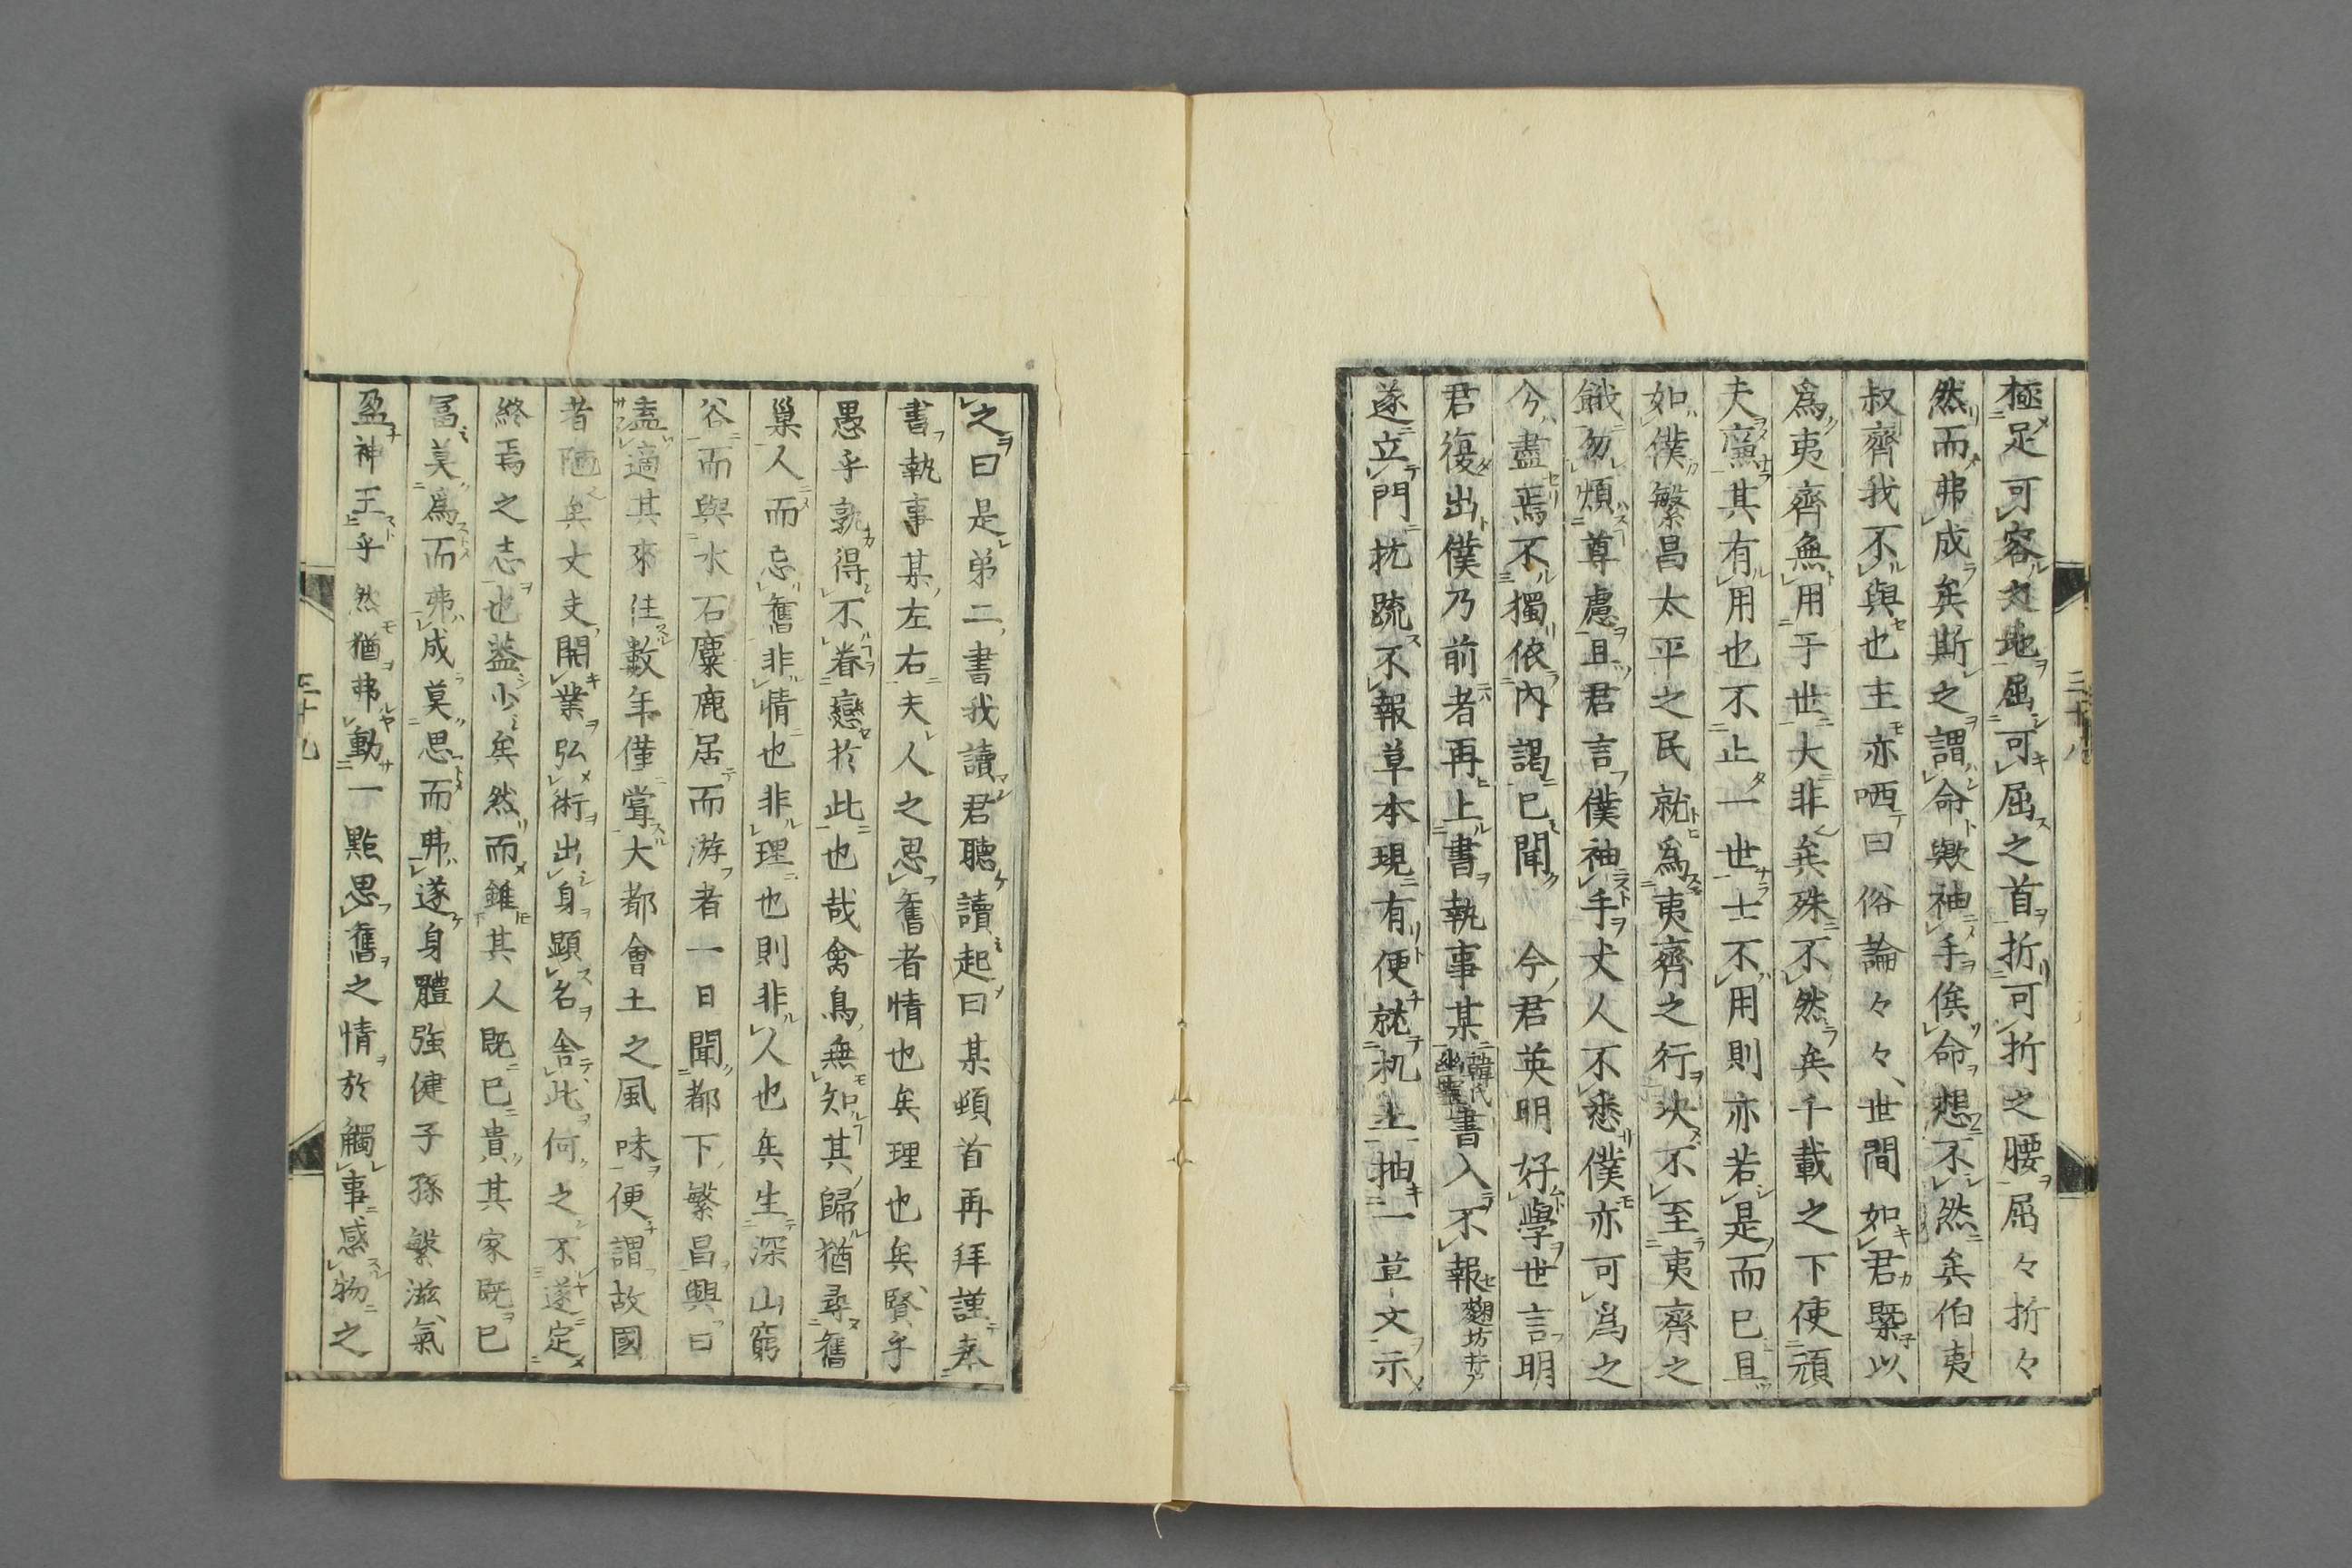 極足可容之地屈可屈之首折可折之腰屈々折々
然而弗成矣斯之謂命歟袖手俟命想不然矣伯夷
叔齊我不與也主亦哂曰俗論々々世間如君槩以
爲夷齊無用于世大非矣殊不然矣千載之下使頑
夫廉其有用也不止一世士不用則亦若是而已且
如僕繁昌太平之民就爲夷齊之行决不至夷齊之
餓勿煩尊慮且君言僕袖手丈人不悉僕亦可爲之
兮盡焉不獨依內謁已聞 今君英明好學世言明
君復出僕乃前者再上書執事某韓氏書入不報
遂立門抗疏不報草本現有便就机上抽一草文示
三十八
之曰是弟二書我讀君聽讀起曰某頓首再拜謹奉
書執事某左右夫人之思舊者情也矣理也矣賢乎
愚乎孰得不眷戀於此也哉禽鳥無知其歸猶尋舊
巢人而忘舊非情也非理也則非人也矣生深山窮
谷而與水石麋鹿居而游者一日聞都下繁昌興曰
盍適其來住數年僅嘗大都會土之風味便謂故國
者陋矣丈夫開業弘術出身顯名舍此何之不遂定
終焉之志也蓋少矣然而雖其人既已貴其家既已
冨莫爲而弗成莫思而弗遂身體強健子孫繁滋氣
盈神王乎然猶弗動一點思舊之情於觸事感物之
三十九